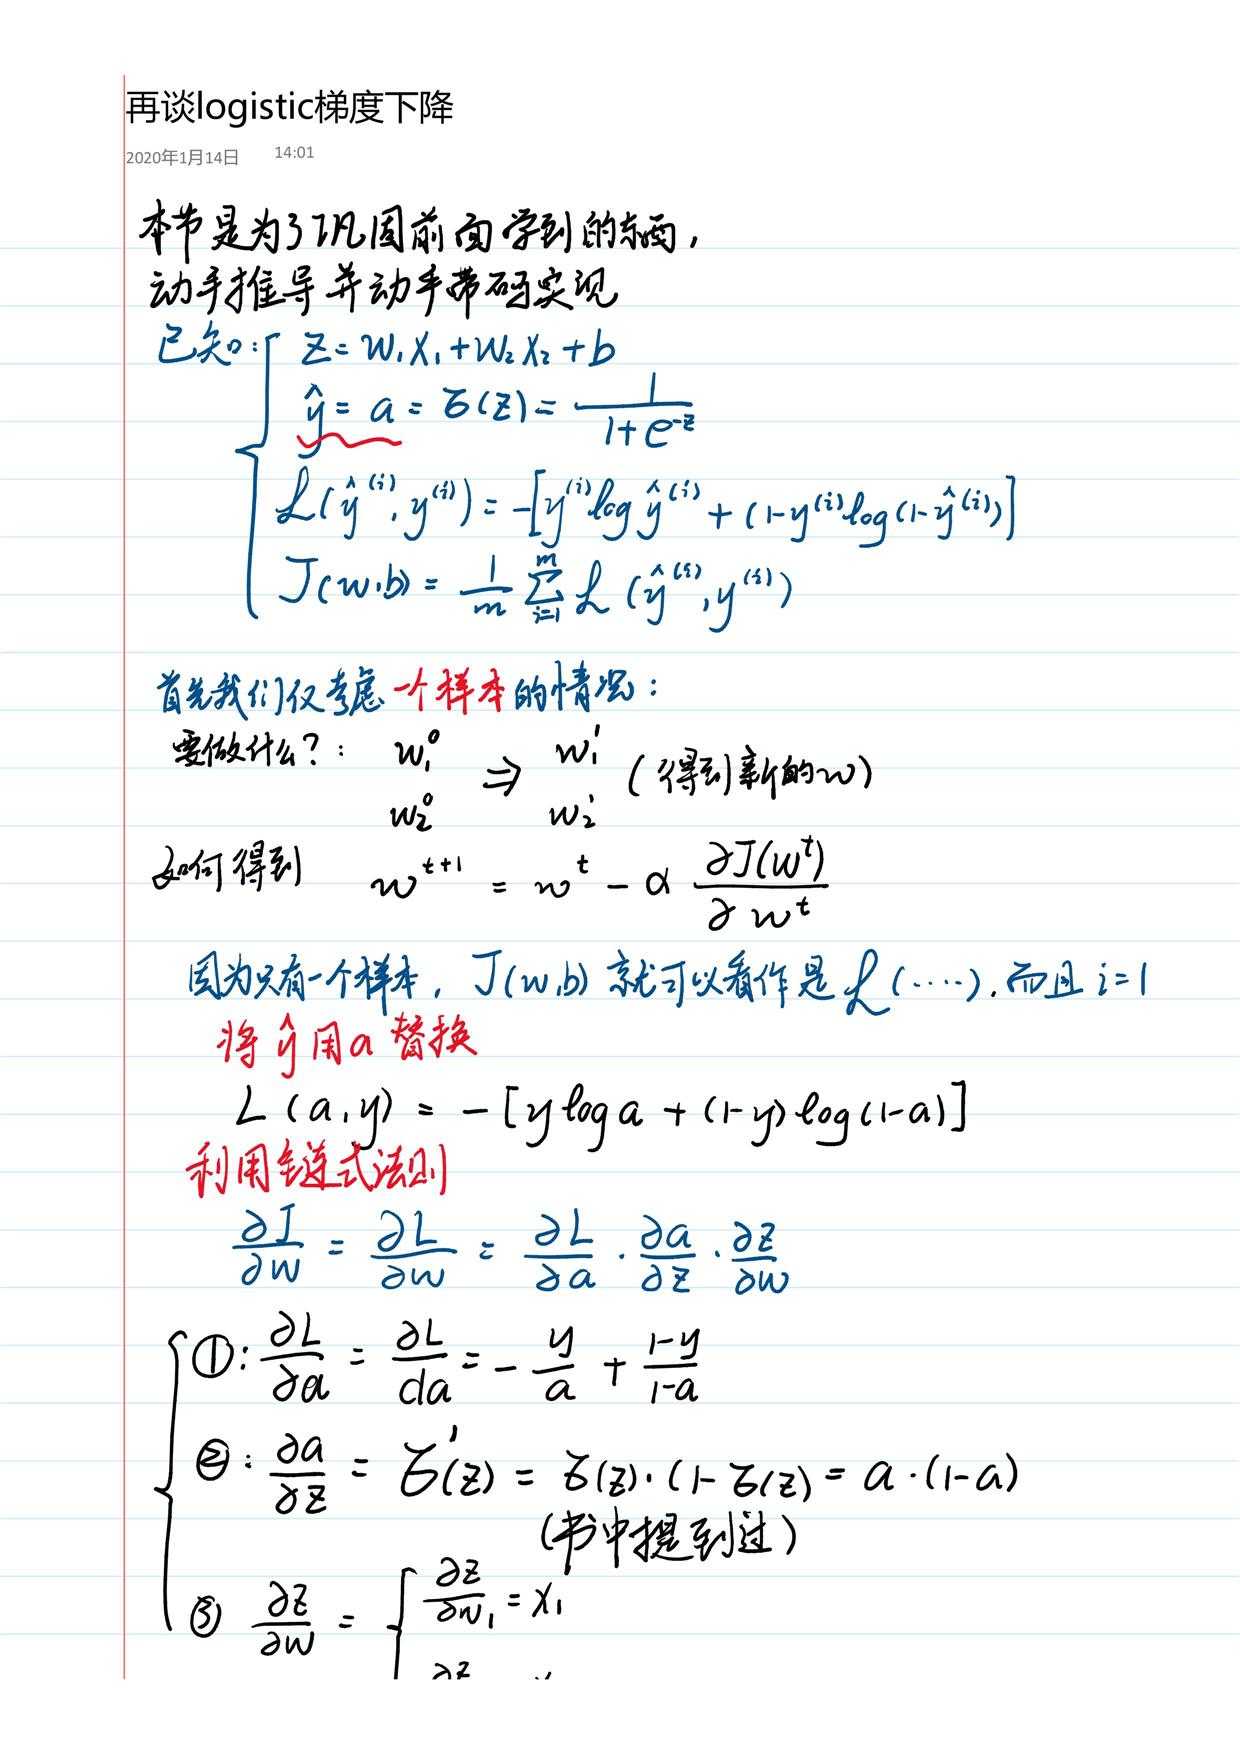 再谈logistic梯度下降
2020年1月14日 14:01
本节是为了巩固前面学到的东西，
动手推导并动手带码实现
已知: { z = w₁x₁ + w₂x₂ + b
ŷ = a = σ(z) = 1/(1+e^-z)
ℒ(ŷ^(i), y^(i)) = -[y^(i) log ŷ^(i) + (1-y^(i) log(1-ŷ^(i))]
J(w,b) = 1/m ∑_{i=1}^m ℒ(ŷ^(i), y^(i))
首先我们仅考虑一个样本的情况：
要做什么？: w₁⁰ w₂⁰ ⇒ w₁¹ w₂¹ (得到新的w)
如何得到 w^{t+1} = w^t - α ∂J(w^t)/∂w^t
因为只有一个样本，J(w,b) 就可以看作是 ℒ(....). 而且 i=1
将 ŷ 用a 替换
L(a,y) = -[y log a + (1-y) log(1-a)]
利用链式法则
∂J/∂w = ∂L/∂w = ∂L/∂a · ∂a/∂z · ∂z/∂w
①: ∂L/∂a = ∂L/da = - y/a + (1-y)/(1-a)
②: ∂a/∂z = σ'(z) = σ(z)·(1-σ(z) = a·(1-a)
(书中提到过)
③ ∂z/∂w = { ∂z/∂w₁ = x₁